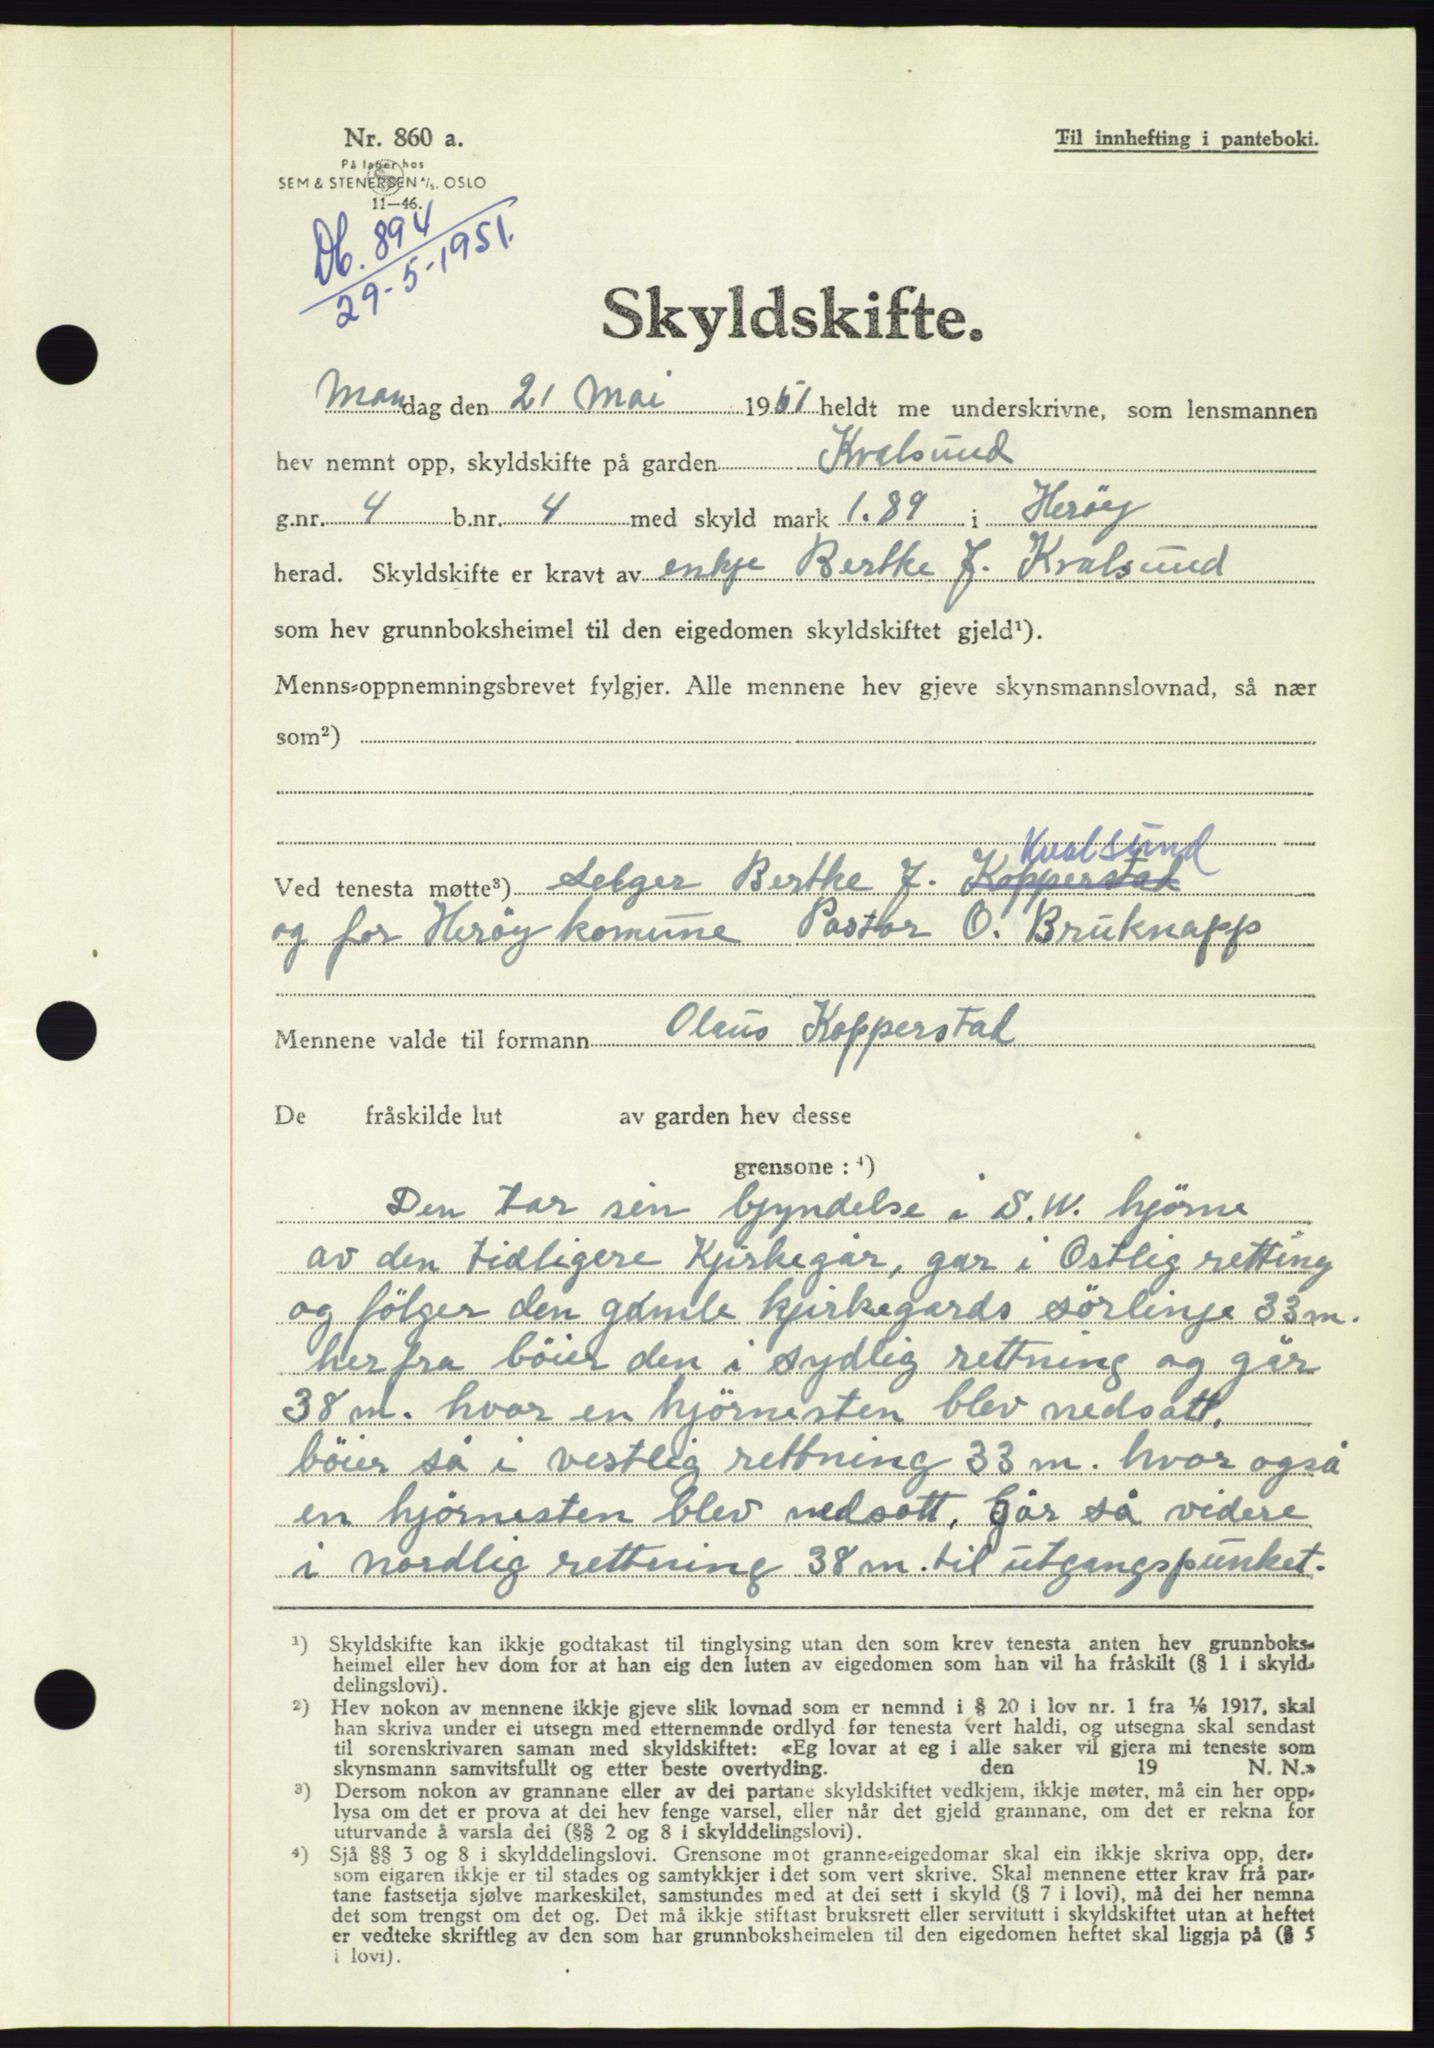 Nr. 860 a.
Til innhefting i panteboki.
På lager hos
SEM & STENERSEN A/S, OSLO
11—46.
Db. 894
29-5-1951.
Skyldskifte.
Mandag den 21 Mai 1951 heldt me underskrivne, som lensmannen
hev nemnt opp, skyldskifte på garden Kvalsund
g.nr. 4 b.nr. 4 med skyld mark 1.89 i Herøy
herad. Skyldskifte er kravt av enkje Berthe J. Kvalsund
som hev grunnboksheimel til den eigedomen skyldskiftet gjeld¹).
Menns-oppnemningsbrevet fylgjer. Alle mennene hev gjeve skynsmannslovnad, så nær
som²)
Kvalsund
Ved tenesta møtte³) Selger Berthe J. Kopperstad
og for Herøy komune Pastor O. Bruknapp
Mennene valde til formann Olaus Kopperstad
De fråskilde lut av garden hev desse
grensone : ⁴)
Den tar sin bjyndelse i S.W. hjörne
av den tidligere Kjirkegår, går i Östlig retting
og fölger den gamle kjirkegards sörlinje 33 m.
herfra böier den i sydlig rettning og går
38 m. hvor en hjörnesten blev nedsatt,
böier så i vestlig rettning 33 m. hvor også
en hjörnesten blev nedsatt, Går så videre
i nordlig rettning 38 m. til utgangspunket.
¹) Skyldskifte kan ikkje godtakast til tinglysing utan den som krev tenesta anten hev grunnboks-
heimel eller hev dom for at han eig den luten av eigedomen som han vil ha fråskilt (§ 1 i skyld-
delingslovi).
²) Hev nokon av mennene ikkje gjeve slik lovnad som er nemnd i § 20 i lov nr. 1 fra 1/6 1917, skal
han skriva under ei utsegn med etternemnde ordlyd før tenesta vert haldi, og utsegna skal sendast
til sorenskrivaren saman med skyldskiftet: «Eg lovar at eg i alle saker vil gjera mi teneste som
skynsmann samvitsfullt og etter beste overtyding. den 19 N. N.»
³) Dersom nokon av grannane eller av dei partane skyldskiftet vedkjem, ikkje møter, må ein her opp-
lysa om det er prova at dei hev fenge varsel, eller når det gjeld grannane, om det er rekna for
uturvande å varsla dei (§§ 2 og 8 i skylddelingslovi).
⁴) Sjå §§ 3 og 8 i skylddelingslovi. Grensone mot granne-eigedomar skal ein ikkje skriva opp, der-
som eigaren ikkje er til stades og samtykkjer i det som vert skrive. Skal mennene etter krav frå par-
tane fastsetja sjølve markeskilet, samstundes med at dei sett i skyld (§ 7 i lovi), må dei her nemna
det som trengst om det og. Det må ikkje stiftast bruksrett eller servitutt i skyldskiftet utan at heftet
er vedteke skriftleg av den som har grunnboksheimelen til den eigedomen heftet skal liggja på (§ 5
i lovi).